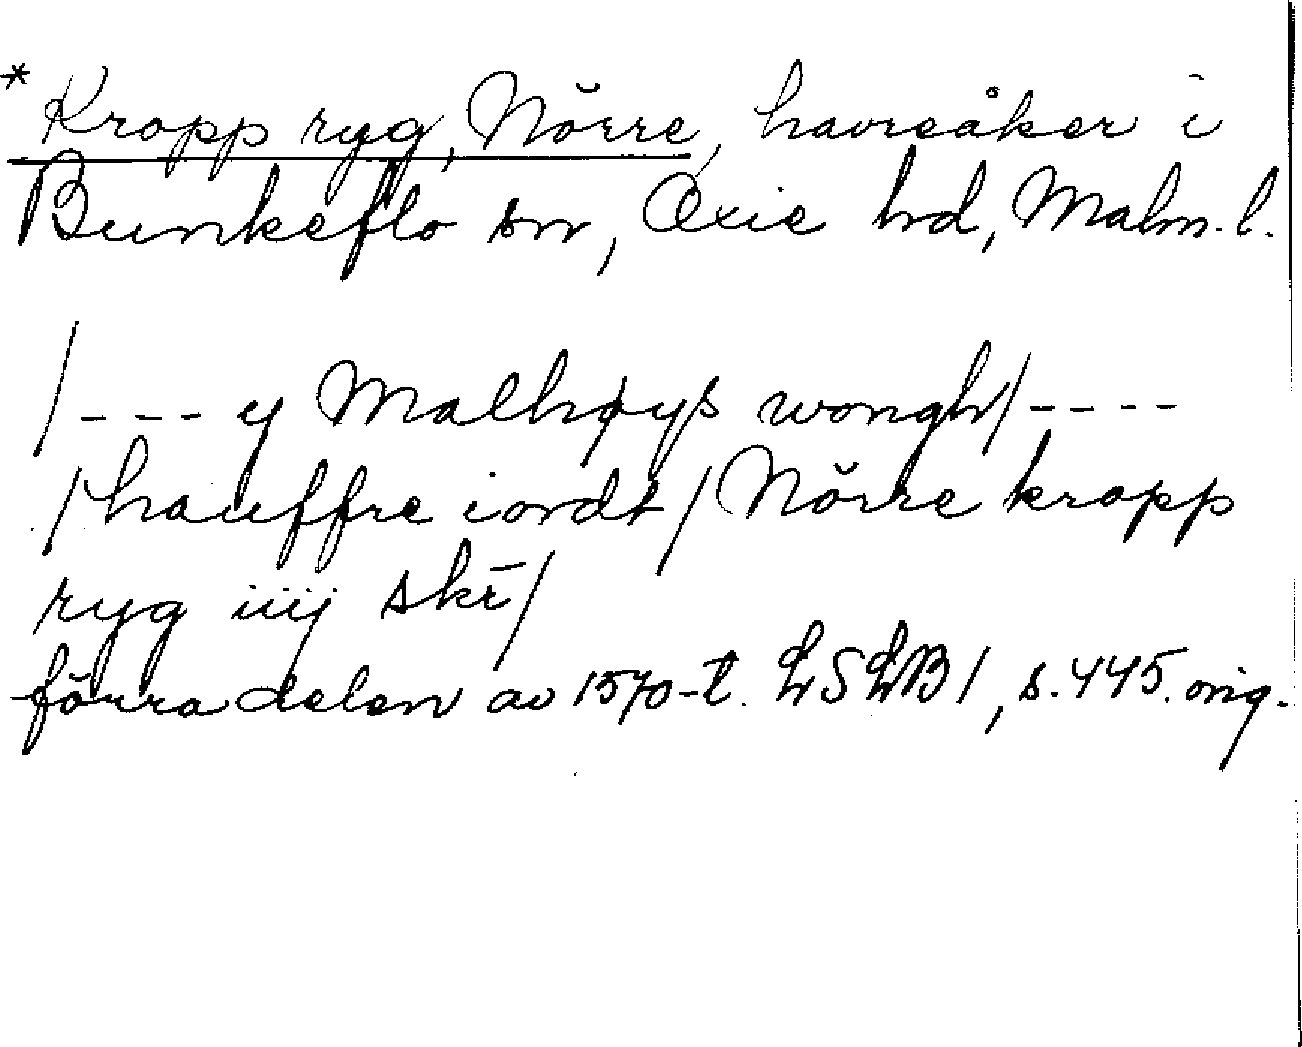 * Kropp ryg, Nŏrre, havreåker i
Bunkeflo sn, Oxie hd, Malm. l.
/---y Malhøys wongh/----
/hauffre iordt/ Nŏrre kropp
ryg iiij skr̄/
förra delen av 1570-t. LSLB1, s. 445. orig.